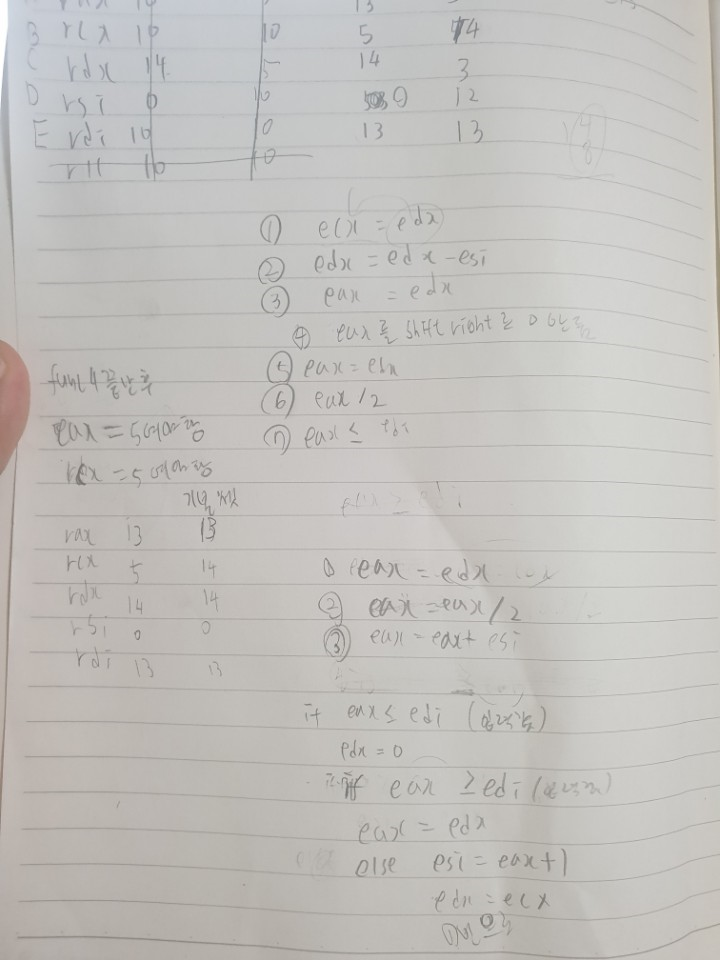 13
B rcx 10 10 5 14
C rdx 14 5 14 3
D rsi 0 10 0 12
E rdi 10 0 13 13
r11 10 0
① ecx = edx
② edx = edx - esi
③ eax = edx
④ eax를 shift right로
⑤ eax =
⑥ eax / 2
⑦ eax ≤ edi
func4 끝난 후
eax = 5여야함
rcx = 5여야함
rax 13 13
rcx 5 14
rdx 14 14
rsi 0 0
rdi 13 13
① eax = edx
② eax = eax / 2
③ eax = eax + esi
if eax ≤ edi (입력값)
edx = 0
if eax ≥ edi (입력값)
eax = edx
else esi = eax + 1
edx = ecx